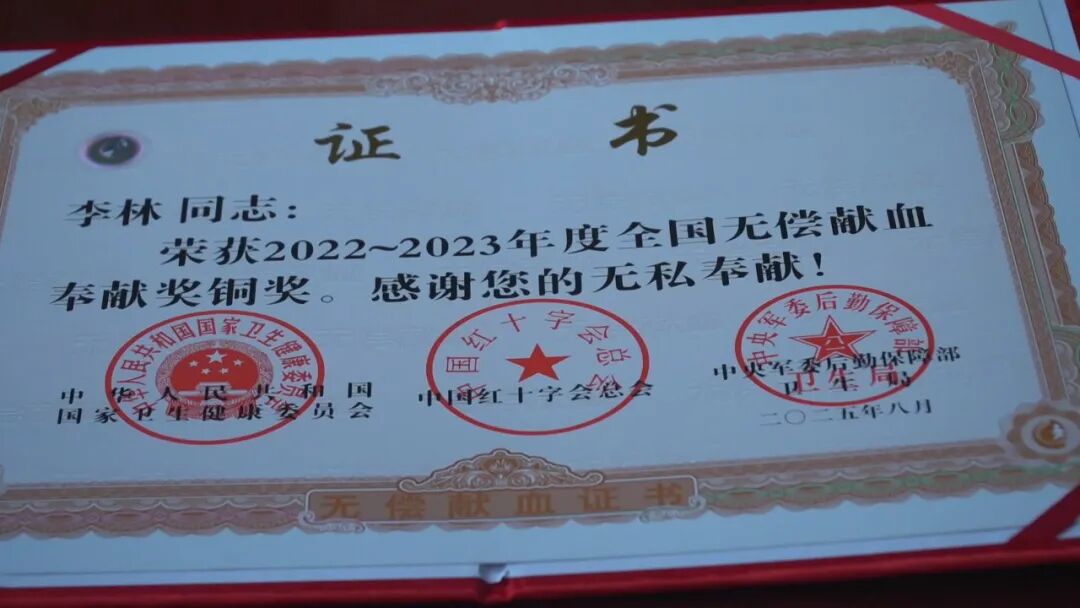 证 书
李林 同志：
荣获2022~2023年度全国无偿献血
奉献奖铜奖。感谢您的无私奉献！
中华人民共和国国家卫生健康委员会
中国红十字会总会
中央军委后勤保障部
卫生局
中华人民共和国
国家卫生健康委员会
中国红十字会总会
中央军委后勤保障部
卫生局
二〇二五年八月
无偿献血证书